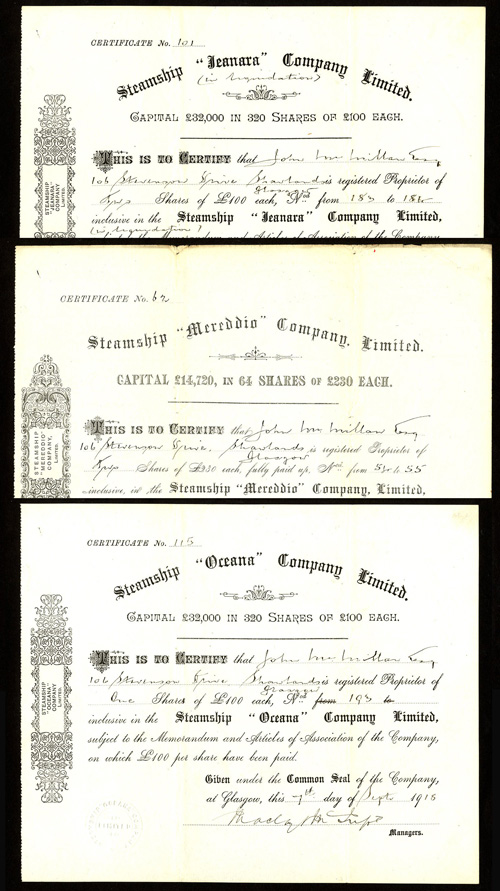 CERTIFICATE No. 101
Steamship "Jeanara" Company Limited.
(in liquidation)
CAPITAL £32,000 IN 320 SHARES OF £100 EACH.
STEAMSHIP "JEANARA" COMPANY LIMITED.
THIS IS TO CERTIFY that John McMillan Esq
106 Stevenson Drive Shawlands is registered Proprietor of
Glasgow
Two Shares of £100 each, Nos. from 183 to 184
inclusive in the Steamship "Jeanara" Company Limited,
(in liquidation)
subject to the Memorandum and Articles of Association of the Company,
CERTIFICATE No. 62
Steamship "Mereddio" Company, Limited.
CAPITAL £14,720, IN 64 SHARES OF £230 EACH.
STEAMSHIP "MEREDDIO" COMPANY, LIMITED.
THIS IS TO CERTIFY that John McMillan Esq
106 Stevenson Drive, Shawlands is registered Proprietor of
Glasgow
Two Shares of £230 each, fully paid up, Nos. from 54 to 55
inclusive, in the Steamship "Mereddio" Company, Limited,
CERTIFICATE No. 115
Steamship "Oceana" Company Limited.
CAPITAL £32,000 IN 320 SHARES OF £100 EACH.
STEAMSHIP "OCEANA" COMPANY LIMITED.
THIS IS TO CERTIFY that John McMillan Esq
106 Stevenson Drive Shawlands is registered Proprietor of
Glasgow
One Shares of £100 each, No. from 193 to
inclusive in the Steamship "Oceana" Company Limited,
subject to the Memorandum and Articles of Association of the Company,
on which £100 per share have been paid.
Given under the Common Seal of the Company,
at Glasgow, this 7th day of Sept 1916
Managers.